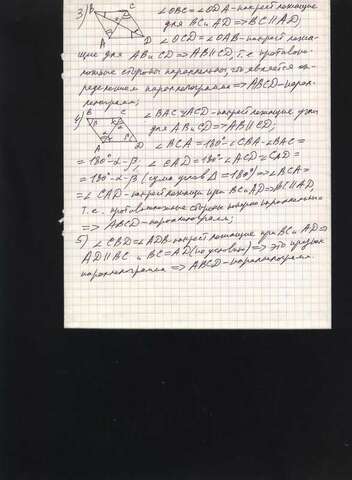 3) ∠OBC = ∠ODA - накрест лежащие
для BC и AD => BC || AD;
∠OCD = ∠OAB - накрест лежа-
щие для AB и CD => AB || CD, т.е. противопо-
ложные стороны параллельны, что является оп-
ределением параллелограмма => ABCD - парал-
лелограмм;
4) ∠BAC и ∠ACD - накрест лежащие углы
для AB и CD => AB || CD;
∠BCA = 180° - ∠CBA - ∠BAC =
= 180° - α - β, ∠CAD = 180° - ∠ACD - ∠CDA =
= 180° - α - β (сумма углов Δ = 180°) => ∠BCA =
= ∠CAD - накрест лежащие при BC и AD => BC || AD,
т.е. противоположные стороны попарно параллельны
=> ABCD - параллелограмм;
5) ∠CBD = ∠ADB - накрест лежащие при BC и AD =>
AD || BC и BC = AD (по условию) => это признак
параллелограмма => ABCD - параллелограмм.